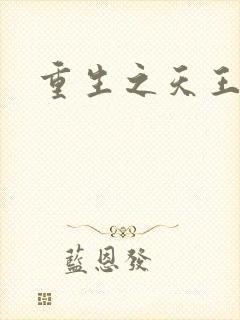 重生之天王
藍恩發